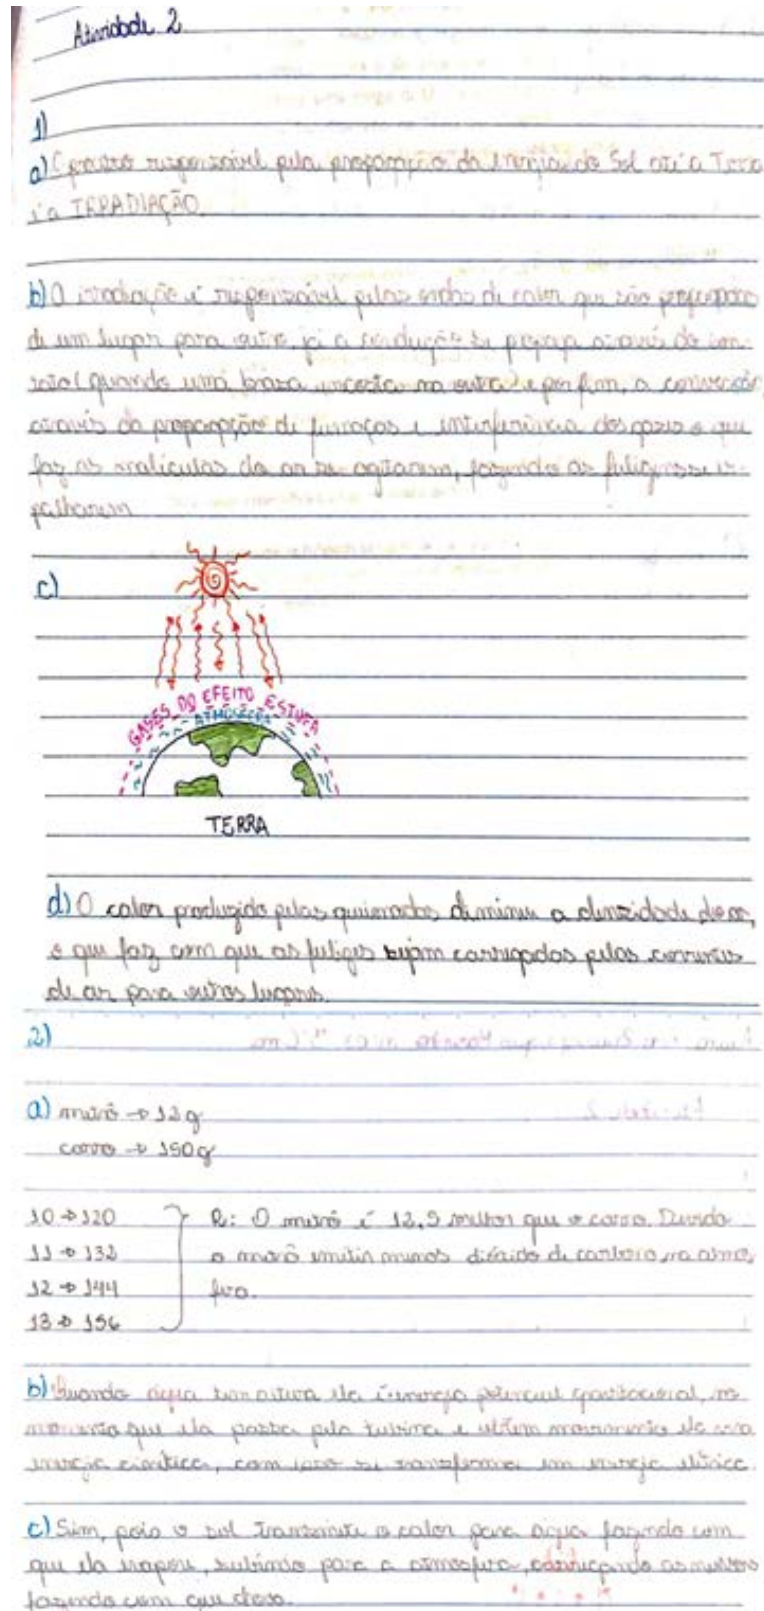 Atividade 2
1)
a) O processo responsável pela propagação da energia do Sol até a Terra
é a IRRADIAÇÃO.
b) O irradiação é responsável pelas ondas de calor que são propagadas
de um lugar para outro, já a condução se propaga através do con-
tato (quando uma braza encosta na outra) e por fim, a convecção,
através da propagação de fumaças e interferência dos gazes o que
faz as moliculas do ar se agitarem, fazendo as fuliges se es-
palharem
c)
GASES DO EFEITO ESTUFA
ATMOSFERA
TERRA
d) O calor produzido pelas queimadas diminui a densidade do ar,
o que faz com que as fuliges sejam carregadas pelas correntes
de ar para outros lugares.
2)
a) metrô → 12g
carro → 190g
10 → 120
11 → 132
12 → 144
13 → 156
R: O metrô é 12,5 melhor que o carro. Devido
o metrô emitir menos dióxido de carbono, na atmos
fera.
b) Quando água tem altura ela é energia potencial gravitacional, no
momento que ela passa pela turbina e obtem movimento ela vira
energia cinética, com isso se transforma em energia elétrica
c) Sim, pois o sol transmite o calor para água fazendo com
que ela evapore, subindo para a atmosfera, as nuvens
fazendo com que chova.